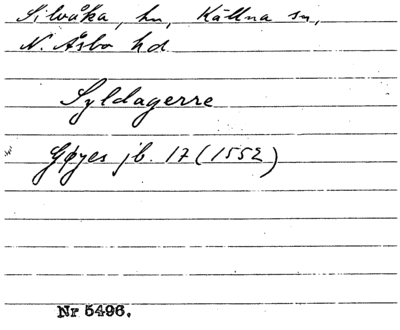 Silvåka, hn, Källna sn,
N. Åsbo hd
Syldagerre
Gøyes jb. 17 (1552)
Nr 5496.